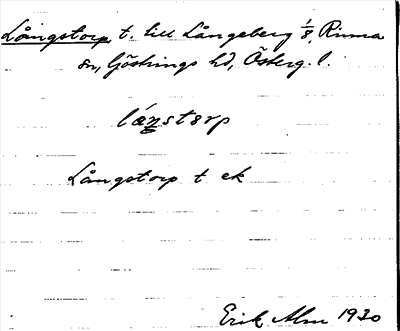 Långstorp t. till Långeberg 1/8, Rinna
sn, Göstrings hd, Österg. l.
láŋstorp
Långstorp t ek
Erik Alm 1930